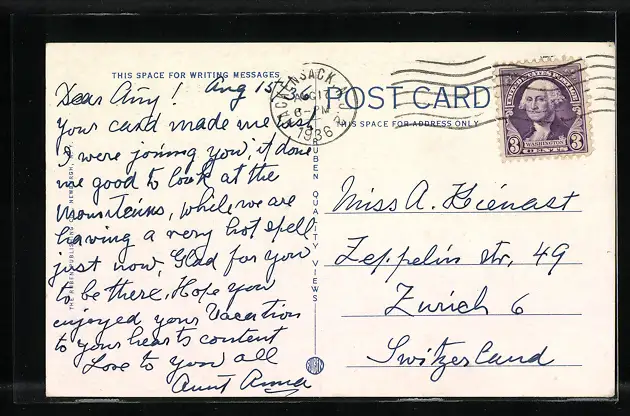 THIS SPACE FOR WRITING MESSAGES
Aug 15th 36
Dear Amy!
Your card made me as if
I were joining you, it done
me good to look at the
Mounteins, while we are
having a very hot spell
just now, Glad for you
to be there. Hope you
enjoyed your Vacation
to your hearts content
Love to you all
Aunt Anna
THE RUBEN PUBLISHING CO., NEWBURGH, N.Y.
RUBEN QUALITY VIEWS
HACKENSACK N.J.
AUG 17
6-PM
1936
POST CARD
THIS SPACE FOR ADDRESS ONLY
UNITED STATES POSTAGE
WASHINGTON
3 CENTS 3
Miss A. Hienast
Zeppelin str, 49
Zurich 6
Switzerland